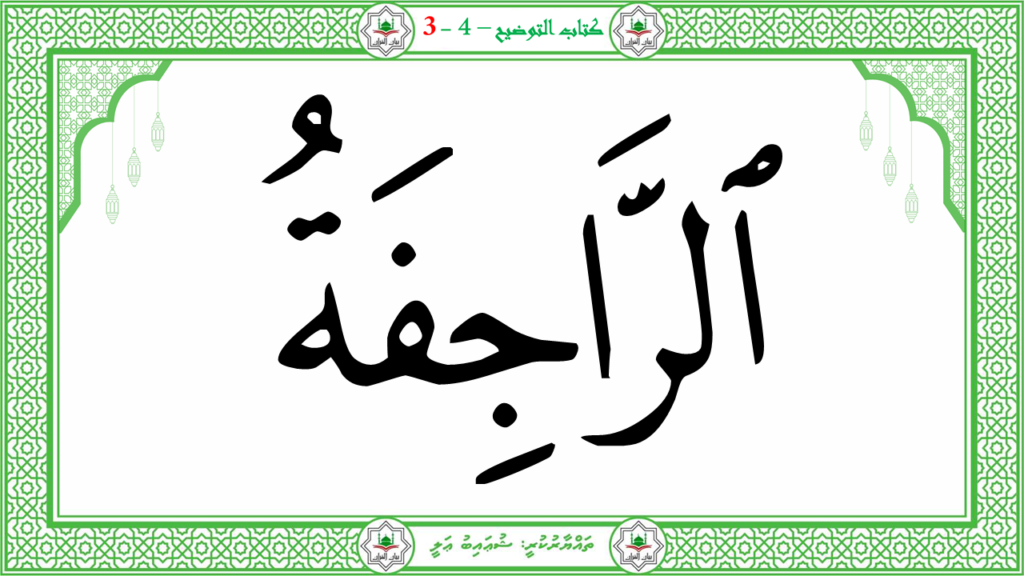 كتاب التوضيح – 4 - 3
ٱلرَّاجِفَةُ
ތައްޔާރުކުރީ: ޝުޢައިބު ޢަލީ